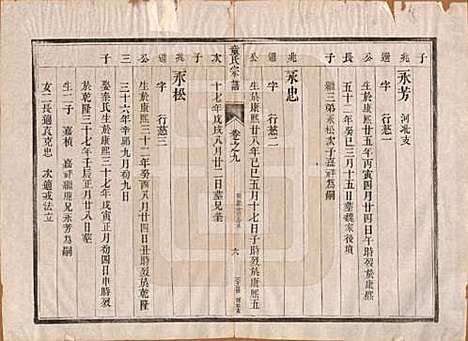 子兆 永芳 河沘支
適 字 行慈一
長公 生於康熙廿五年丙寅四月廿四日歿於康熙
五十二年癸巳三月十五日墓魏家後墳
子 繼三弟永松次子嘉祥爲嗣
兆 永忠
適 字 行慈二
公 生於康熙廿八年己巳五月十七日子時歿於康熙五
童氏宗譜 卷之九 六
次 十七年戊戌八月廿二日墓兄塋
子兆 永松
適 字 行慈三
公 生於康熙三十二年癸酉八月廿四日丑時歿於乾隆
三 三十六年辛卯九月初九日
子 娶秦氏生於康熙三十七年戊寅正月初四日申時歿
於乾隆三十七年壬辰正月廿八日墓
生二子 嘉楨 嘉祥繼居兄永芳爲嗣
女二長適袁克忠 次適戒法立